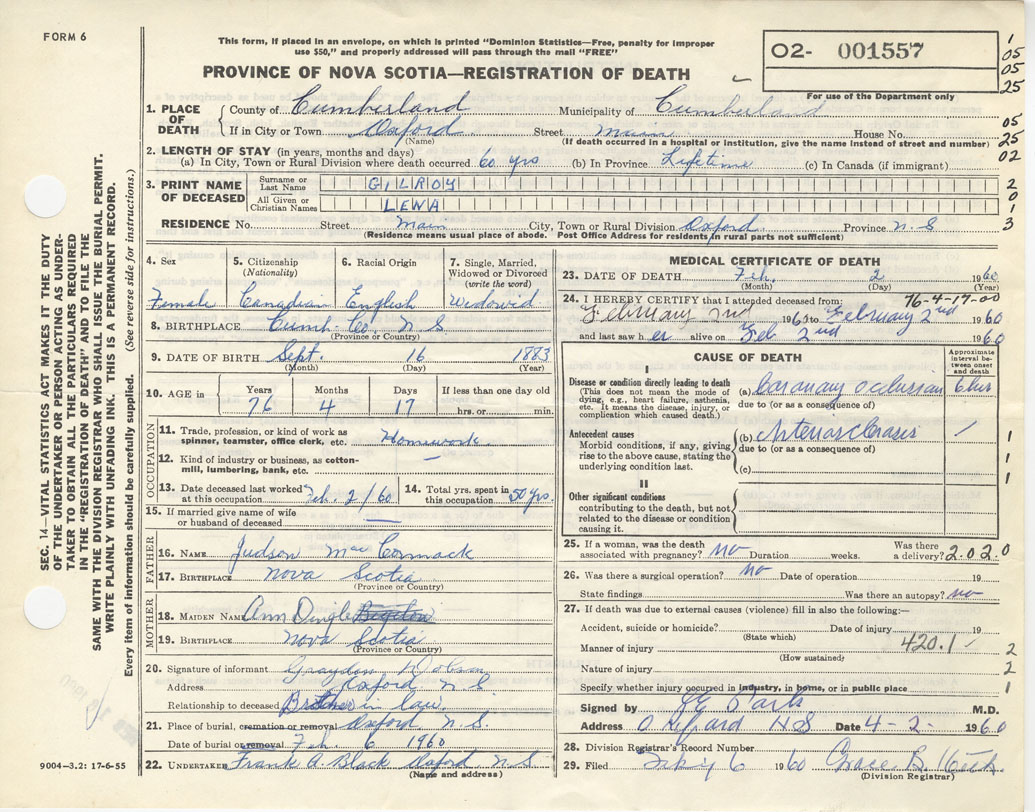 FORM 6
This form, if placed in an envelope, on which is printed "Dominion Statistics—Free, penalty for improper
use $50," and properly addressed will pass through the mail "FREE"
PROVINCE OF NOVA SCOTIA—REGISTRATION OF DEATH
O2- 001557
For use of the Department only
1
05
05
25
1. PLACE OF DEATH
County of Cumberland Municipality of Cumberland
If in City or Town Oxford Street Main House No. 05
(Name) (If death occurred in a hospital or institution, give the name instead of street and number) 25
2. LENGTH OF STAY (in years, months and days) 02
(a) In City, Town or Rural Division where death occurred 60 yrs (b) In Province Lifetime (c) In Canada (if immigrant)
3. PRINT NAME OF DECEASED
Surname or Last Name GILROY 2
0
All Given or Christian Names LENA 1
RESIDENCE No. Street Main City, Town or Rural Division Oxford Province N.S 3
(Residence means usual place of abode. Post Office Address for residents in rural parts not sufficient)
4. Sex
Female
5. Citizenship (Nationality)
Canadian
6. Racial Origin
English
7. Single, Married, Widowed or Divorced (write the word)
Widowed
8. BIRTHPLACE Cumb. Co. N S
(Province or Country)
9. DATE OF BIRTH Sept. 16 1883
(Month) (Day) (Year)
10. AGE in
Years Months Days If less than one day old
76 4 17 hrs. or min.
OCCUPATION
11. Trade, profession, or kind of work as
spinner, teamster, office clerk, etc. Housework
12. Kind of industry or business, as cotton-
mill, lumbering, bank, etc. —
13. Date deceased last worked at this occupation Feb. 2/60
14. Total yrs. spent in this occupation 50 yrs.
15. If married give name of wife
or husband of deceased —
FATHER
16. NAME Judson MacCormack
17. BIRTHPLACE Nova Scotia
(Province or Country)
MOTHER
18. MAIDEN NAME Ann Dingle
19. BIRTHPLACE Nova Scotia
(Province or Country)
20. Signature of informant Graydon
Address Oxford N S
Relationship to deceased Brother in law
21. Place of burial, cremation or removal Oxford, N.S.
Date of burial or removal Feb. 6 1960
22. UNDERTAKER Frank A. Black Oxford N.S.
(Name and address)
MEDICAL CERTIFICATE OF DEATH
23. DATE OF DEATH Feb. 2 1960
(Month) (Day) (Year)
24. I HEREBY CERTIFY that I attended deceased from: 76-4-17-00
February 2nd 1960 to February 2nd 1960
and last saw her alive on Feb 2nd 1960
CAUSE OF DEATH
Approximate interval between onset and death
I
Disease or condition directly leading to death
(This does not mean the mode of
dying, e.g., heart failure, asthenia,
etc. It means the disease, injury, or
complication which caused death.)
(a) Coronary Occlusion
due to (or as a consequence of)
Antecedent causes
Morbid conditions, if any, giving
rise to the above cause, stating the
underlying condition last.
(b)
due to (or as a consequence of)
(c)
1
1
1
1
II
Other significant conditions
contributing to the death, but not
related to the disease or condition
causing it.
25. If a woman, was the death
associated with pregnancy? no Duration weeks. Was there a delivery? 2.0.2.0
26. Was there a surgical operation? no Date of operation 19
State findings Was there an autopsy? no
27. If death was due to external causes (violence) fill in also the following:—
Accident, suicide or homicide? Date of injury 19
(State which) 420.1
Manner of injury 2
(How sustained)
Nature of injury 2
Specify whether injury occurred in industry, in home, or in public place 1
Signed by M.D.
Address Oxford N S Date 4-2-1960
28. Division Registrar's Record Number
29. Filed 6 1960 Grace B.
(Division Registrar)
SEC. 14—VITAL STATISTICS ACT MAKES IT THE DUTY
OF THE UNDERTAKER OR PERSON ACTING AS UNDER-
TAKER TO OBTAIN ALL THE PARTICULARS REQUIRED
IN THE "REGISTRATION OF DEATH" AND TO FILE THE
SAME WITH THE DIVISION REGISTRAR WHO SHALL ISSUE THE BURIAL PERMIT.
WRITE PLAINLY WITH UNFADING INK. THIS IS A PERMANENT RECORD.
Every item of information should be carefully supplied. (See reverse side for instructions.)
9004—3.2: 17-6-55